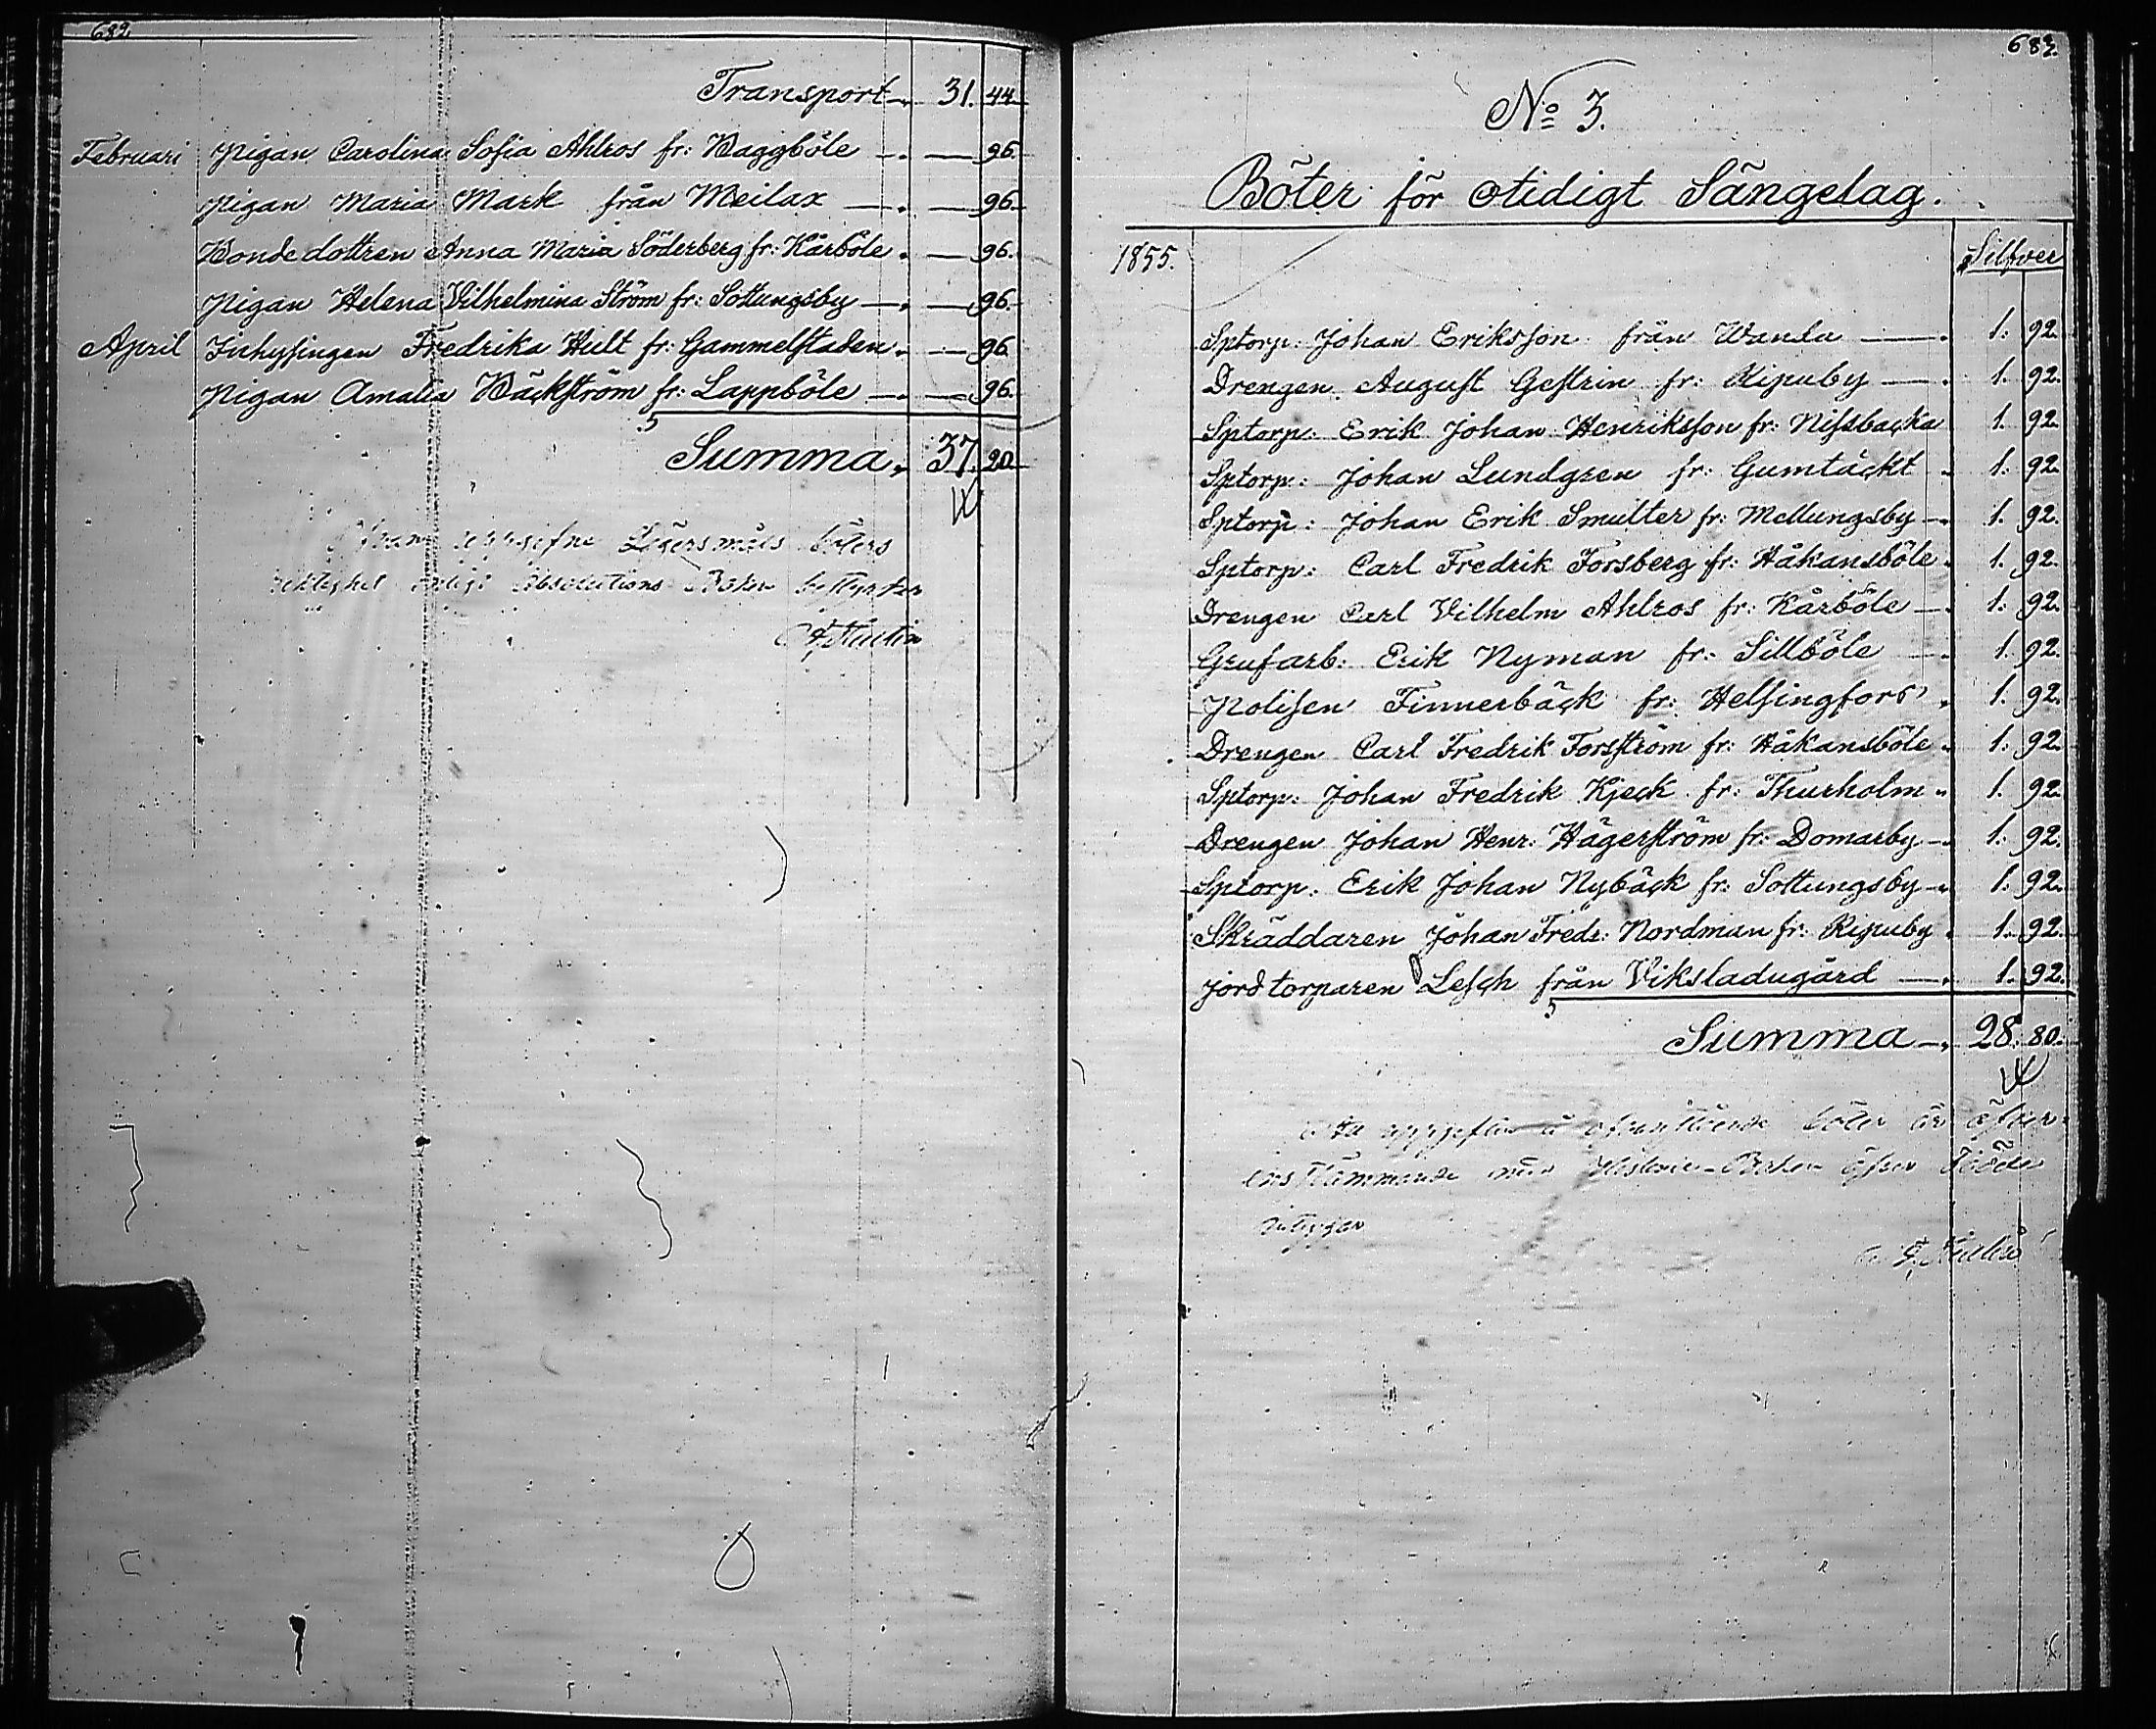 682
Transport 31. 44
Februari Pigan Carolina Sofia Ahlros fr: Baggböle — 96.
Pigan Maria Mark från Meilax — 96.
Bondedottren Anna Maria Söderberg fr: Kårböle — 96.
Pigan Helena Vilhelmina Ström fr: Sottungsby — 96.
April Inhysingen Fredrika Hult fr: Gammelstaden — 96.
Pigan Amalia Bäckström fr: Lappböle — 96.
Summa 37. 20
uppgifne Lägersmåls böters
enligt Absolutions Boken
682
No 3.
Böter för otidigt Sängelag.
1855. Silfver
Sptorp: Johan Eriksson från Wanda — 1: 92.
Drengen August Gestrin fr: Ripuby — 1. 92.
Sptorp: Erik Johan Henriksson fr: Nissbacka 1. 92.
Sptorp: Johan Lundgren fr: Gumtäckt 1. 92.
Sptorp: Johan Erik Smulter fr: Mellungsby — 1. 92.
Sptorp: Carl Fredrik Forsberg fr: Håkansböle 1. 92.
Drengen Carl Vilhelm Ahlros fr: Kårböle — 1: 92.
Grufarb: Erik Nyman fr: Sillböle — 1. 92.
Polisen Finnerbäck fr: Helsingfors 1. 92.
Drengen Carl Fredrik Forsström fr: Håkansböle 1: 92.
Sptorp: Johan Fredrik Kjeck fr: Thurholm 1. 92.
Drengen Johan Henr: Hägerström fr: Domarby — 1: 92.
Sptorp: Erik Johan Nybäck fr: Sottungsby 1: 92.
Skräddaren Johan Fredr: Nordman fr: Ripuby 1. 92.
Jordtorparen Lesch från Viksladugård — 1. 92.
Summa 28. 80.
böter är öfver-
ensstämmande med Historie-Boken öfver Födde
intygar